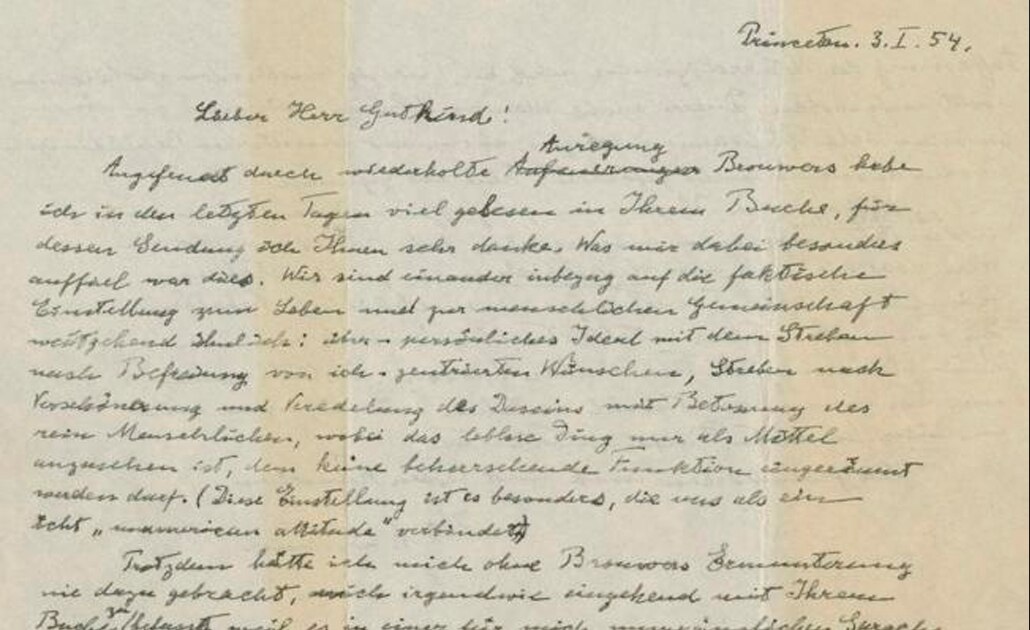 Princeton. 3. I. 54.
Lieber Herr Gutkind!
Anregung
Angefeuert durch wiederholte Brouwers habe
ich in den letzten Tagen viel gelesen in Ihrem Buche, für
dessen Sendung ich Ihnen sehr danke. Was mir dabei besonders
auffiel war dies. Wir sind einander inbezug auf die faktische
Einstellung zum Leben und zur menschlichen Gemeinschaft
weitgehend ähnlich: über-persönliches Ideal mit dem Streben
nach Befreiung von ich-zentrierten Wünschen, Streben nach
Verschönerung und Veredelung des Daseins mit Betonung des
rein Menschlichen, wobei das leblose Ding nur als Mittel
anzusehen ist, dem keine beherrschende Funktion eingeräumt
werden darf. (Diese Einstellung ist es besonders, die uns als ein
echt „unamerican attitude“ verbindet)
Trotzdem hätte ich mich ohne Brouwers Ermunterung
nie dazu gebracht, mich irgendwie eingehend mit Ihrem
Buche zu befassen weil es in einer für mich unzugänglichen Sprache